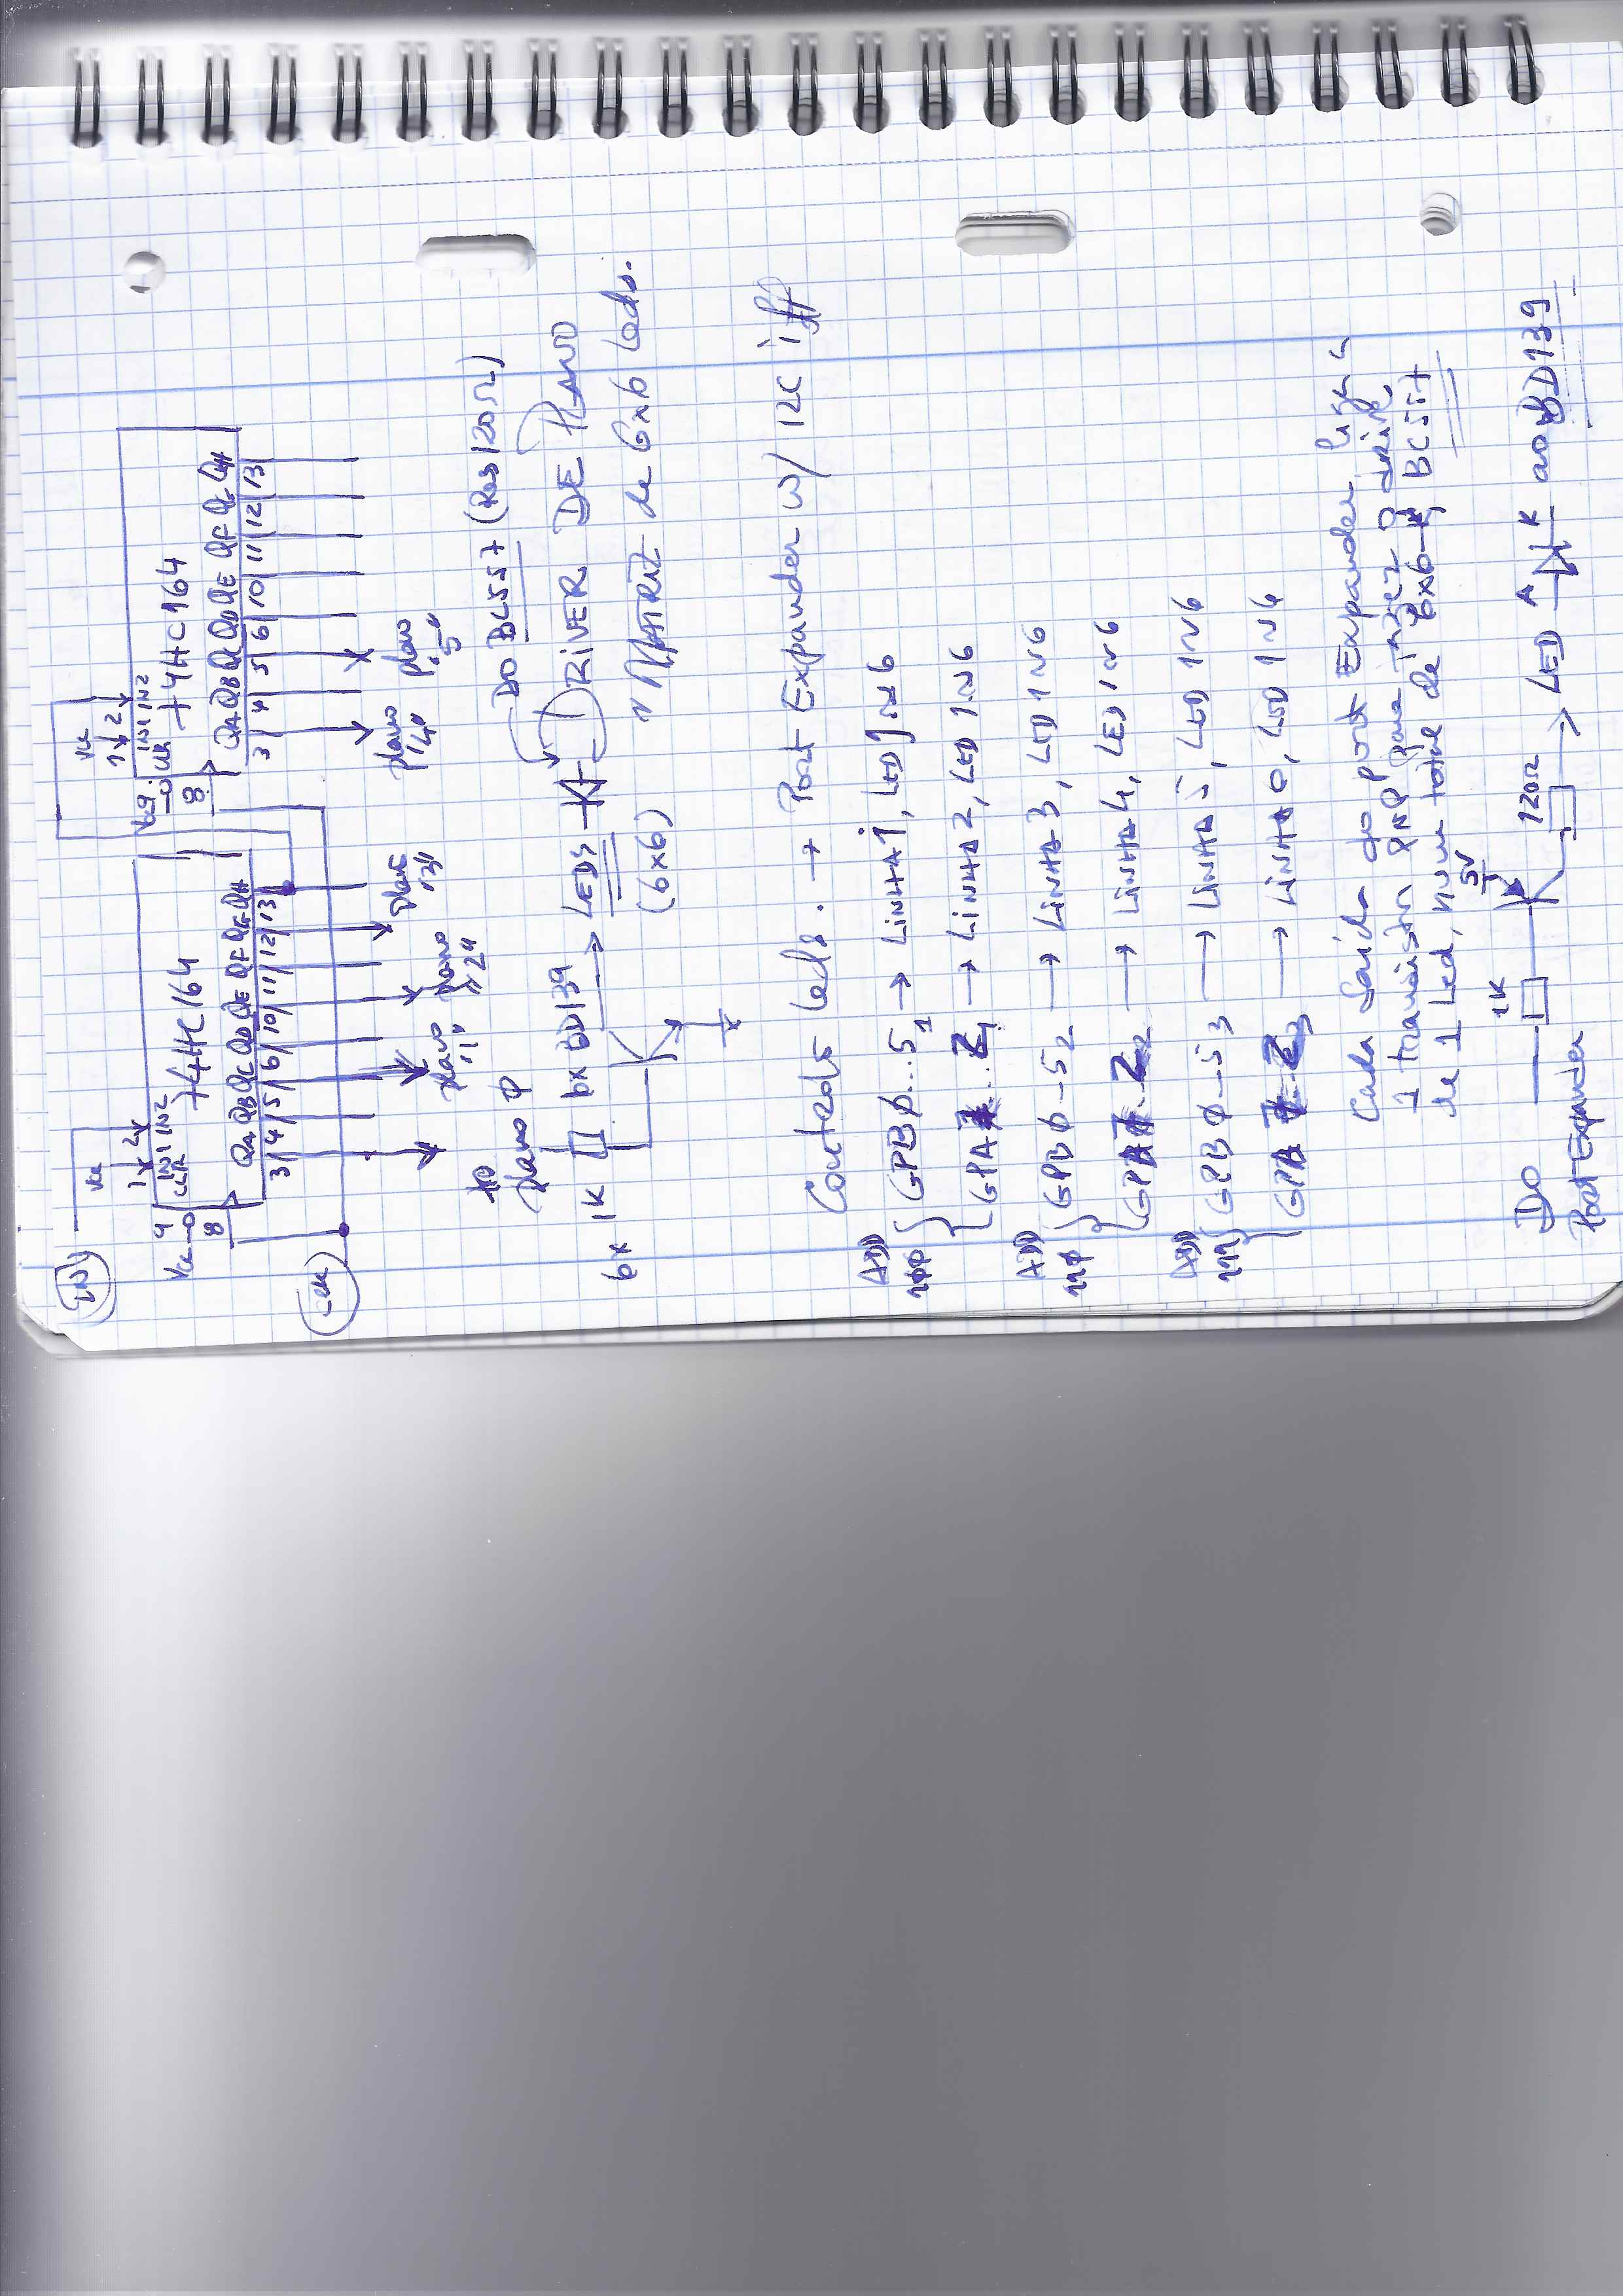 IN
Vcc
Vcc
1 2
1 2
9
IN1 IN2
Vcc
CLR
74HC164
8
QA QB QC QD QE QF QG QH
3 4 5 6 10 11 12 13
9
IN1 IN2
Vcc
CLR
74HC164
8
QA QB QC QD QE QF QG QH
3 4 5 6 10 11 12 13
CLK
plano "1"
plano "2"
plano "3"
plano "4"
plano "5"
to
plano φ
DO BC557 (Res 120Ω)
6x 1K
6x BD139
LEDS
(6x6)
DRIVER DE PLANO
" MATRIZ de 6x6 leds.
Controlo leds. → Port Expander w/ I2C iff
ADD
1φφ
GPBφ...5₁ → LINHA 1, LED 1~6
GPA7...2₁ → LINHA 2, LED 1~6
ADD
11φ
GPBφ-5₂ → LINHA 3, LED 1~6
GPA7-2₂ → LINHA 4, LED 1~6
ADD
111
GPBφ-5₃ → LINHA 5, LED 1~6
GPA7-2₃ → LINHA 6, LED 1~6
Cada Saída do port Expander liga a
1 transistor PNP para fazer o drive
de 1 Led, num total de 6x6 BC557
5V
DO
Port Expander
1K
120Ω
LED
A K
ao BD139